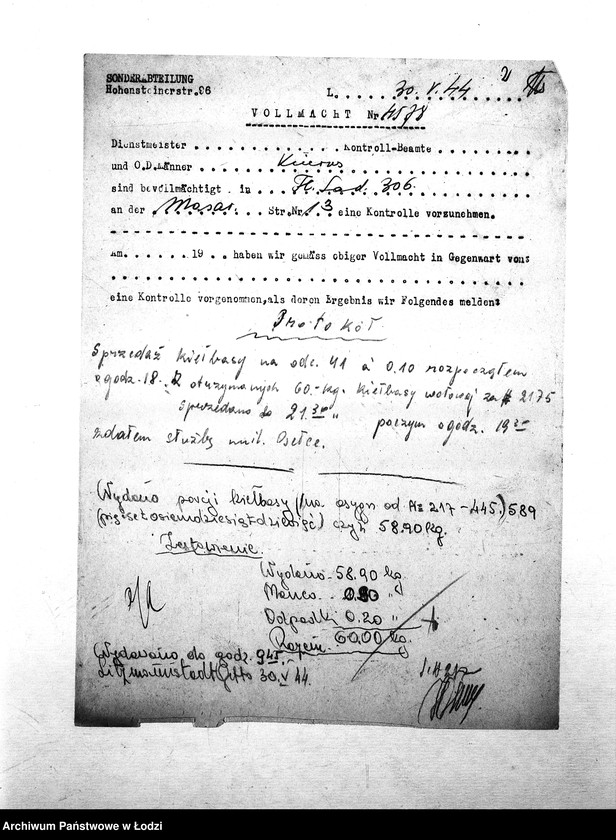 SONDERABTEILUNG
Hohensteinerstr.96
2
L. 30. V. 44
VOLLMACHT Nr 4578
Dienstmeister . . . . . . . . . . . . Kontroll-Beamte . . . . . . . . .
und O.D.Männer
sind bevollmächtigt . in . Fl. Lad. 306.
an der Masar. Str.Nr. 13 eine Kontrolle vorzunehmen.
Am. . . . . . 19 . . haben wir gemäss obiger Vollmacht in Gegenwart von:
eine Kontrolle vorgenommen,als deren Ergebnis wir Folgendes melden:
Protokół
Sprzedaż kiełbasy na odc. 41 à 0.10 rozpocząłem
o godz. 18. Z otrzymanych 60.- kg. kiełbasy wołowej za № 2175
sprzedano do 21.30 " poczym o godz. 19 30
zdałem służbę
Wydano porcji kiełbasy (na asygn od № 217 - 445.) 589
(pięćsetosiemdziesiątdziewięć) czyli 58.90 kg.
Zestawienie
Wydano - 58.90 kg.
Manco . 0.90 "
Odpadki 0.20 "
Razem 60.00 kg.
Wydawano do godz. 9 45
Litzmannstadt Getto 30. V 44.
Archiwum Państwowe w Łodzi